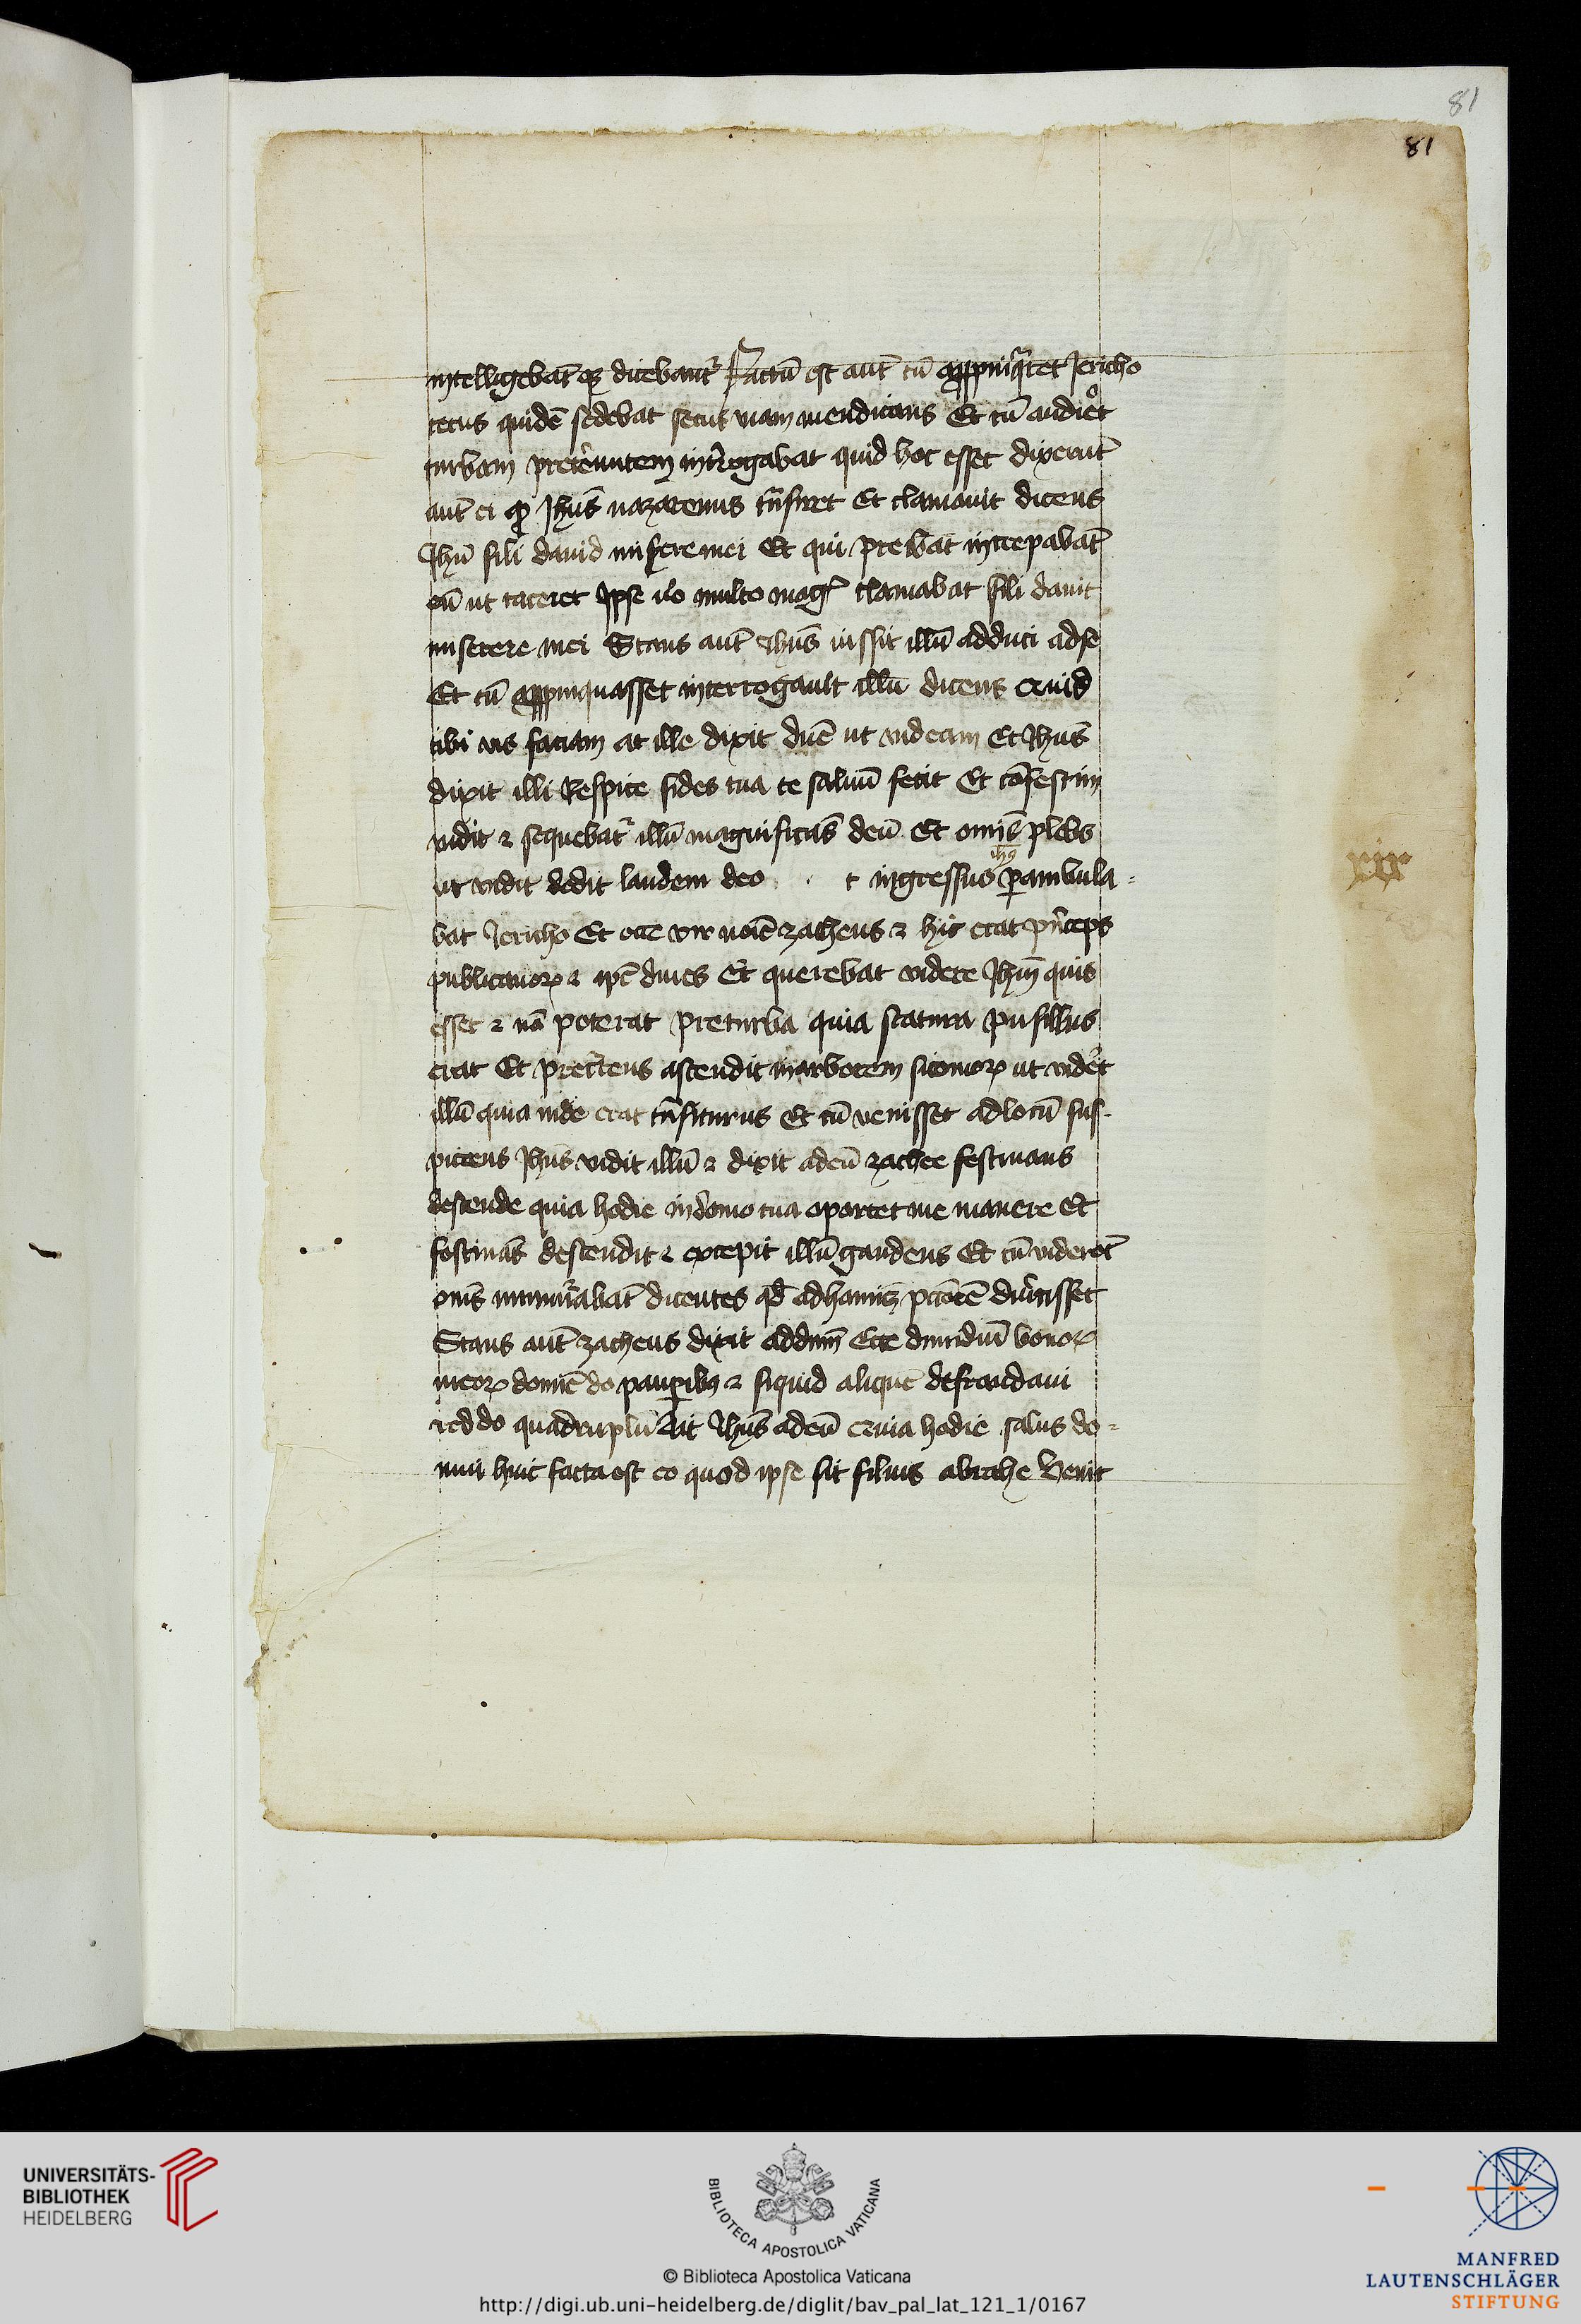 81
81
intelligebāt q̄ dicebant᷑ Factū est aut̄ cū appinq̄ret Jericho
cecus quidē sedebat secus viam mendicans Et cū audiet
turbam pretereuntem int̄rogabat quid hoc esset dixerūt
aut̄ ei ꝙ Jhūs nazarenus trāsiret Et clamavit dicens
Jhū fili david miserere mei Et qui preibāt increpabāt
eū ut taceret Ipse v̄o multo mag᷑ clamabat fili davit
miserere mei Stans aut̄ Jhūs iussit illū adduci adse
Et cū appinquasset interrogauit illū dicens Quid
tibi vis faciam at ille dixit dn̄e ut videam Et Jhūs
dixit illi Respice fides tua te saluū fecit Et cōfestim
vidit ⁊ sequebat᷑ illū magnificās deū Et omīs plebs
ut vidit dedit laudem deo t ingressus ihꝯ ꝑambula-
bat Jericho Et ecce vir noīe zacheus ⁊ hic erat pͥnceps
publicanoꝝ ⁊ ip̄e dives Et querebat videre Jhm̄ quis
esset ⁊ nō poterat preturba quia statura pusillus
erat Et precurrens ascendit inarborem sicomoꝝ ut videt
illū quia inde erat trāsiturus Et cū venisset adlocū sus-
piciens Jhūs vidit illū ⁊ dixit adeū zachee festinans
descende quia hodie indomo tua oportet me manere Et
festinās descendit ⁊ excepit illū gaudens Et cū viderēt
om̄s murmurabāt dicentes qd̄ adhominē pctōrē divertisset
Stans aut̄ zacheus dixit addnm̄ Ecce dimidiū bonoꝝ
meoꝝ domīe do pauꝑibꝫ ⁊ siquid aliquē defraudavi
reddo quadruplū Ait Jhūs adeū Quia hodie salus do-
mui huic facta est eo quod ipse sit filius abrahe Venit
xix
UNIVERSITÄTS-
BIBLIOTHEK
HEIDELBERG
BIBLIOTECA APOSTOLICA VATICANA
© Biblioteca Apostolica Vaticana
http://digi.ub.uni-heidelberg.de/diglit/bav_pal_lat_121_1/0167
MANFRED
LAUTENSCHLÄGER
STIFTUNG